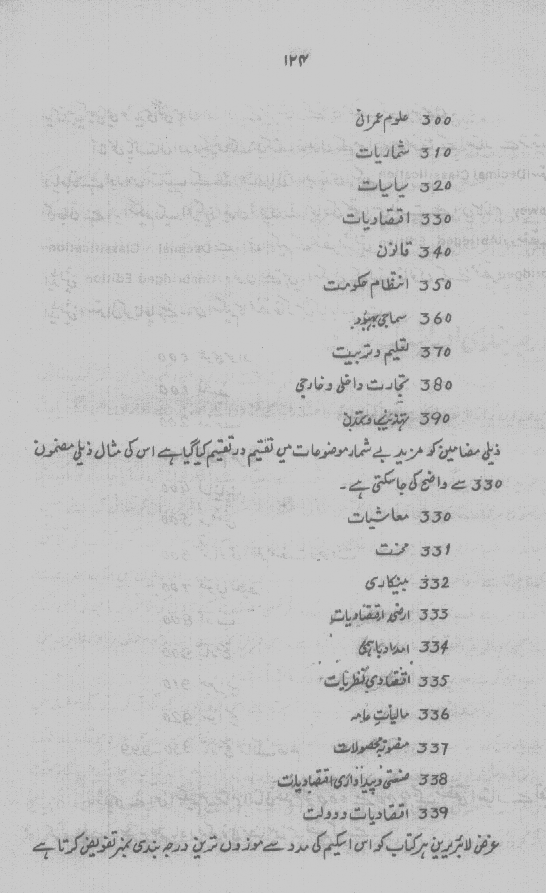 ۱۲۴
300 علوم عمرانی
310 شماریات
320 سیاسیات
330 اقتصادیات
340 قانون
350 انتظام حکومت
360 سماجی بہبود
370 تعلیم و تربیت
380 تجارت داخلی و خارجی
390 تہذیب و تمدن
ذیلی مضامین کو مزید بے شمار موضوعات میں تقسیم در تقسیم کیا گیا ہے اس کی مثال ذیلی مضمون
330 سے واضح کی جا سکتی ہے۔
330 معاشیات
331 محنت
332 بینکاری
333 ارضی اقتصادیات
334 امداد باہمی
335 اقتصادی نظریات
336 مالیات عامہ
337 محصولات
338 صنعتی و پیداواری اقتصادیات
339 اقتصادیات و دولت
غرض لائبریرین ہر کتاب کو اس اسکیم کی مدد سے موزوں ترین درجہ بندی نمبر تفویض کرتا ہے